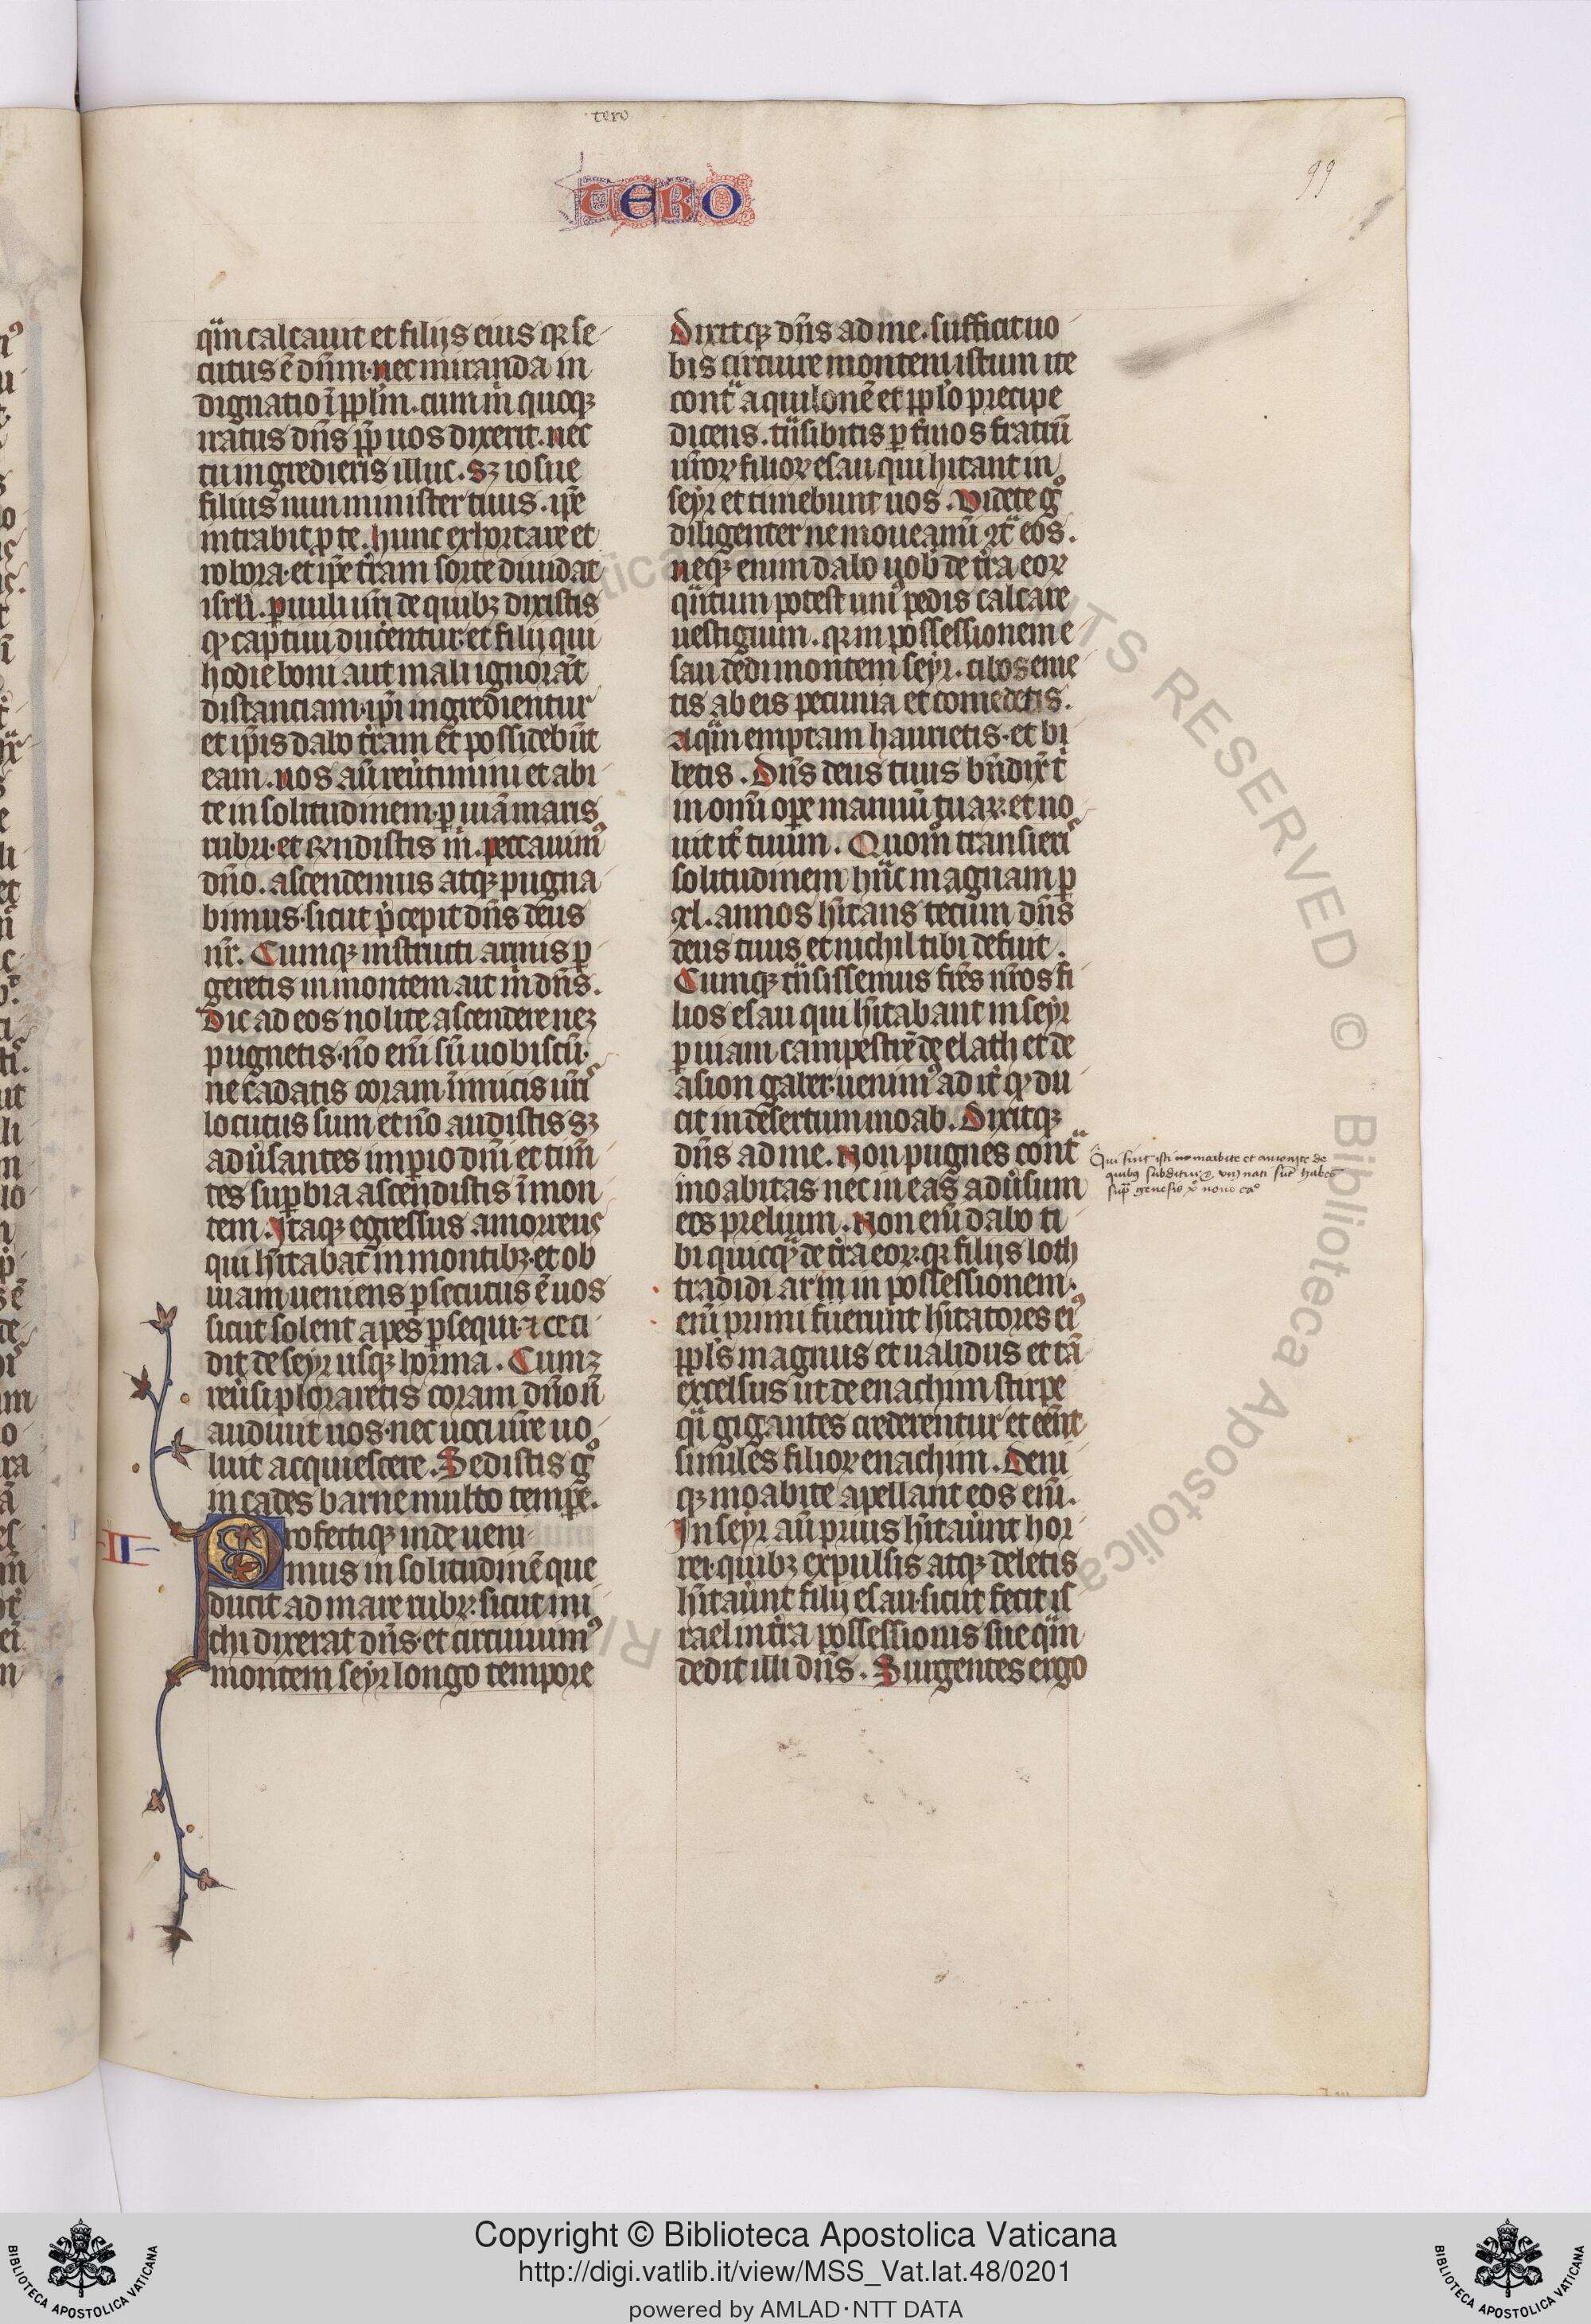 tero
TERO
99
q̈m calcauit et filijs eius qꝛ se-
cutus ē dn̄m. nec miranda in
dignatio ī ppl̄m. cum m̍ quoqꝫ
iratus dn̄s ppͣ uos dixerit. nec
tu ingredieris illuc. sꝫ iosue
filius nun minister tuus. ip̄e
intrabit ꝓ te. hunc exhortare et
robora. et ip̄e t̄ram sorte diuidat
isrl̄i. paruuli ur̄i de quibꝫ dixistis
ꝙ captiui ducentur. et filij qui
hodie boni aut mali ignorāt
distanciam. ip̄i ingredientur
et ip̄is dabo t̄ram et possidebūt
eam. uos aū reu̍timini et abi
te in solitudinem. ꝑ uiā maris
rubri. et rn̄distis m̍. peccauimꝰ
dn̄o. ascendemus atqꝫ pugna
bimus. sicut p̄cepit dn̄s deus
nr̄. Cumqꝫ instructi armis ꝑ
geretis in montem ait m̍ dn̄s.
Dic ad eos nolite ascendere neqꝫ
pugnetis. nō enī sū uobiscū.
ne cadatis coram inimicis ur̄is
locutus sum et nō audistis sꝫ
adu̍santes imꝑio dn̄i et tum̄
tes suꝑbia ascendistis ī mon
tem. Itaqꝫ egressus amorreus
qui hītabat in montibꝫ. et ob
uiam ueniens ꝑsecutus ē uos
sicut solent apes ꝑsequi. ⁊ ceci
dit de seyr usqꝫ horma. Cumqꝫ
reu̍si ploraretis coram dn̄o n̄
audiuit uos. nec uoci ur̄e uo
luit acquiescere. Sedistis gͦ
in cades barne multo temꝑe.
II
Profectiqꝫ inde ueni
mus in solitudinē que
ducit ad mare rubꝝ. sicut mi
chi dixerat dn̄s. et circuiuimꝰ
montem seyr longo tempore
Dixitqꝫ dn̄s ad me. sufficit uo
bis circuire montem istum ite
contͣ aquilonē et ppl̄o precipe
dicens. tͣnsibitis ꝑ t̍minos fratrū
ur̄oꝝ filioꝝ esau qui hītant in
seyr et timebunt uos. Videte gͦ
diligenter ne moueamī ꝯtͣ eos.
neqꝫ enim dabo uob̄ de t̄ra eoꝝ
qͣntum potest unīꝰ pedis calcare
uestigium. qꝛ in possessionem e
sau dedi montem seyr. cibos eme
tis ab eis pecunia et comedetis.
aqͣm emptam haurietis. et bi
betis. Dn̄s deus tuus bn̄dix̄t t̍
in omī oꝑe manuū tuaꝝ. et no
uit it̍ tuum. Quom̊ transieris
solitudinem hͣnc magnam ꝑ
xl. annos hītans tecum dn̄s
deus tuus et nichil tibi defuit.
Cumqꝫ tͣnsissemus fr̄es nr̄os fi
lios esau qui hītabant in seyr
ꝑ uiam campestrē de elath et de
asion gaber. uenimꝰ ad it̍ ꝙ du
cit in desertum moab. Dixitqꝫ
dn̄s ad me. Non pugnes contͣ
moabitas nec ineas adu̍sum
eos prelium. Non enī dabo ti
bi quicqͣꝫ de t̄ra eoꝝ. qꝛ filijs loth
tradidi ar in possessionem.
enī primi fuerunt hītatores eiꝰ
ppl̄s magnus et ualidus et tā
excelsus ut de enachim stirpe
qͣi gigantes crederentur et eēnt
similes filioꝝ enachim. Deni
qꝫ moabite apellant eos emī.
In seyr aū prius hītau̍unt hor
rei. quibꝫ expulsis atqꝫ deletis
hītau̍unt filij esau. sicut fecit is
rael in t̄ra possessionis sue qͣm
dedit illi dn̄s. Surgentes ergo
Qui sint isti moabite et amonite de
quibus subditur et unde nati sunt habes
sup̄ genesis xº nono caº
Copyright © Biblioteca Apostolica Vaticana
http://digi.vatlib.it/view/MSS_Vat.lat.48/0201
powered by AMLAD·NTT DATA
BIBLIOTECA APOSTOLICA VATICANA
BIBLIOTECA APOSTOLICA VATICANA